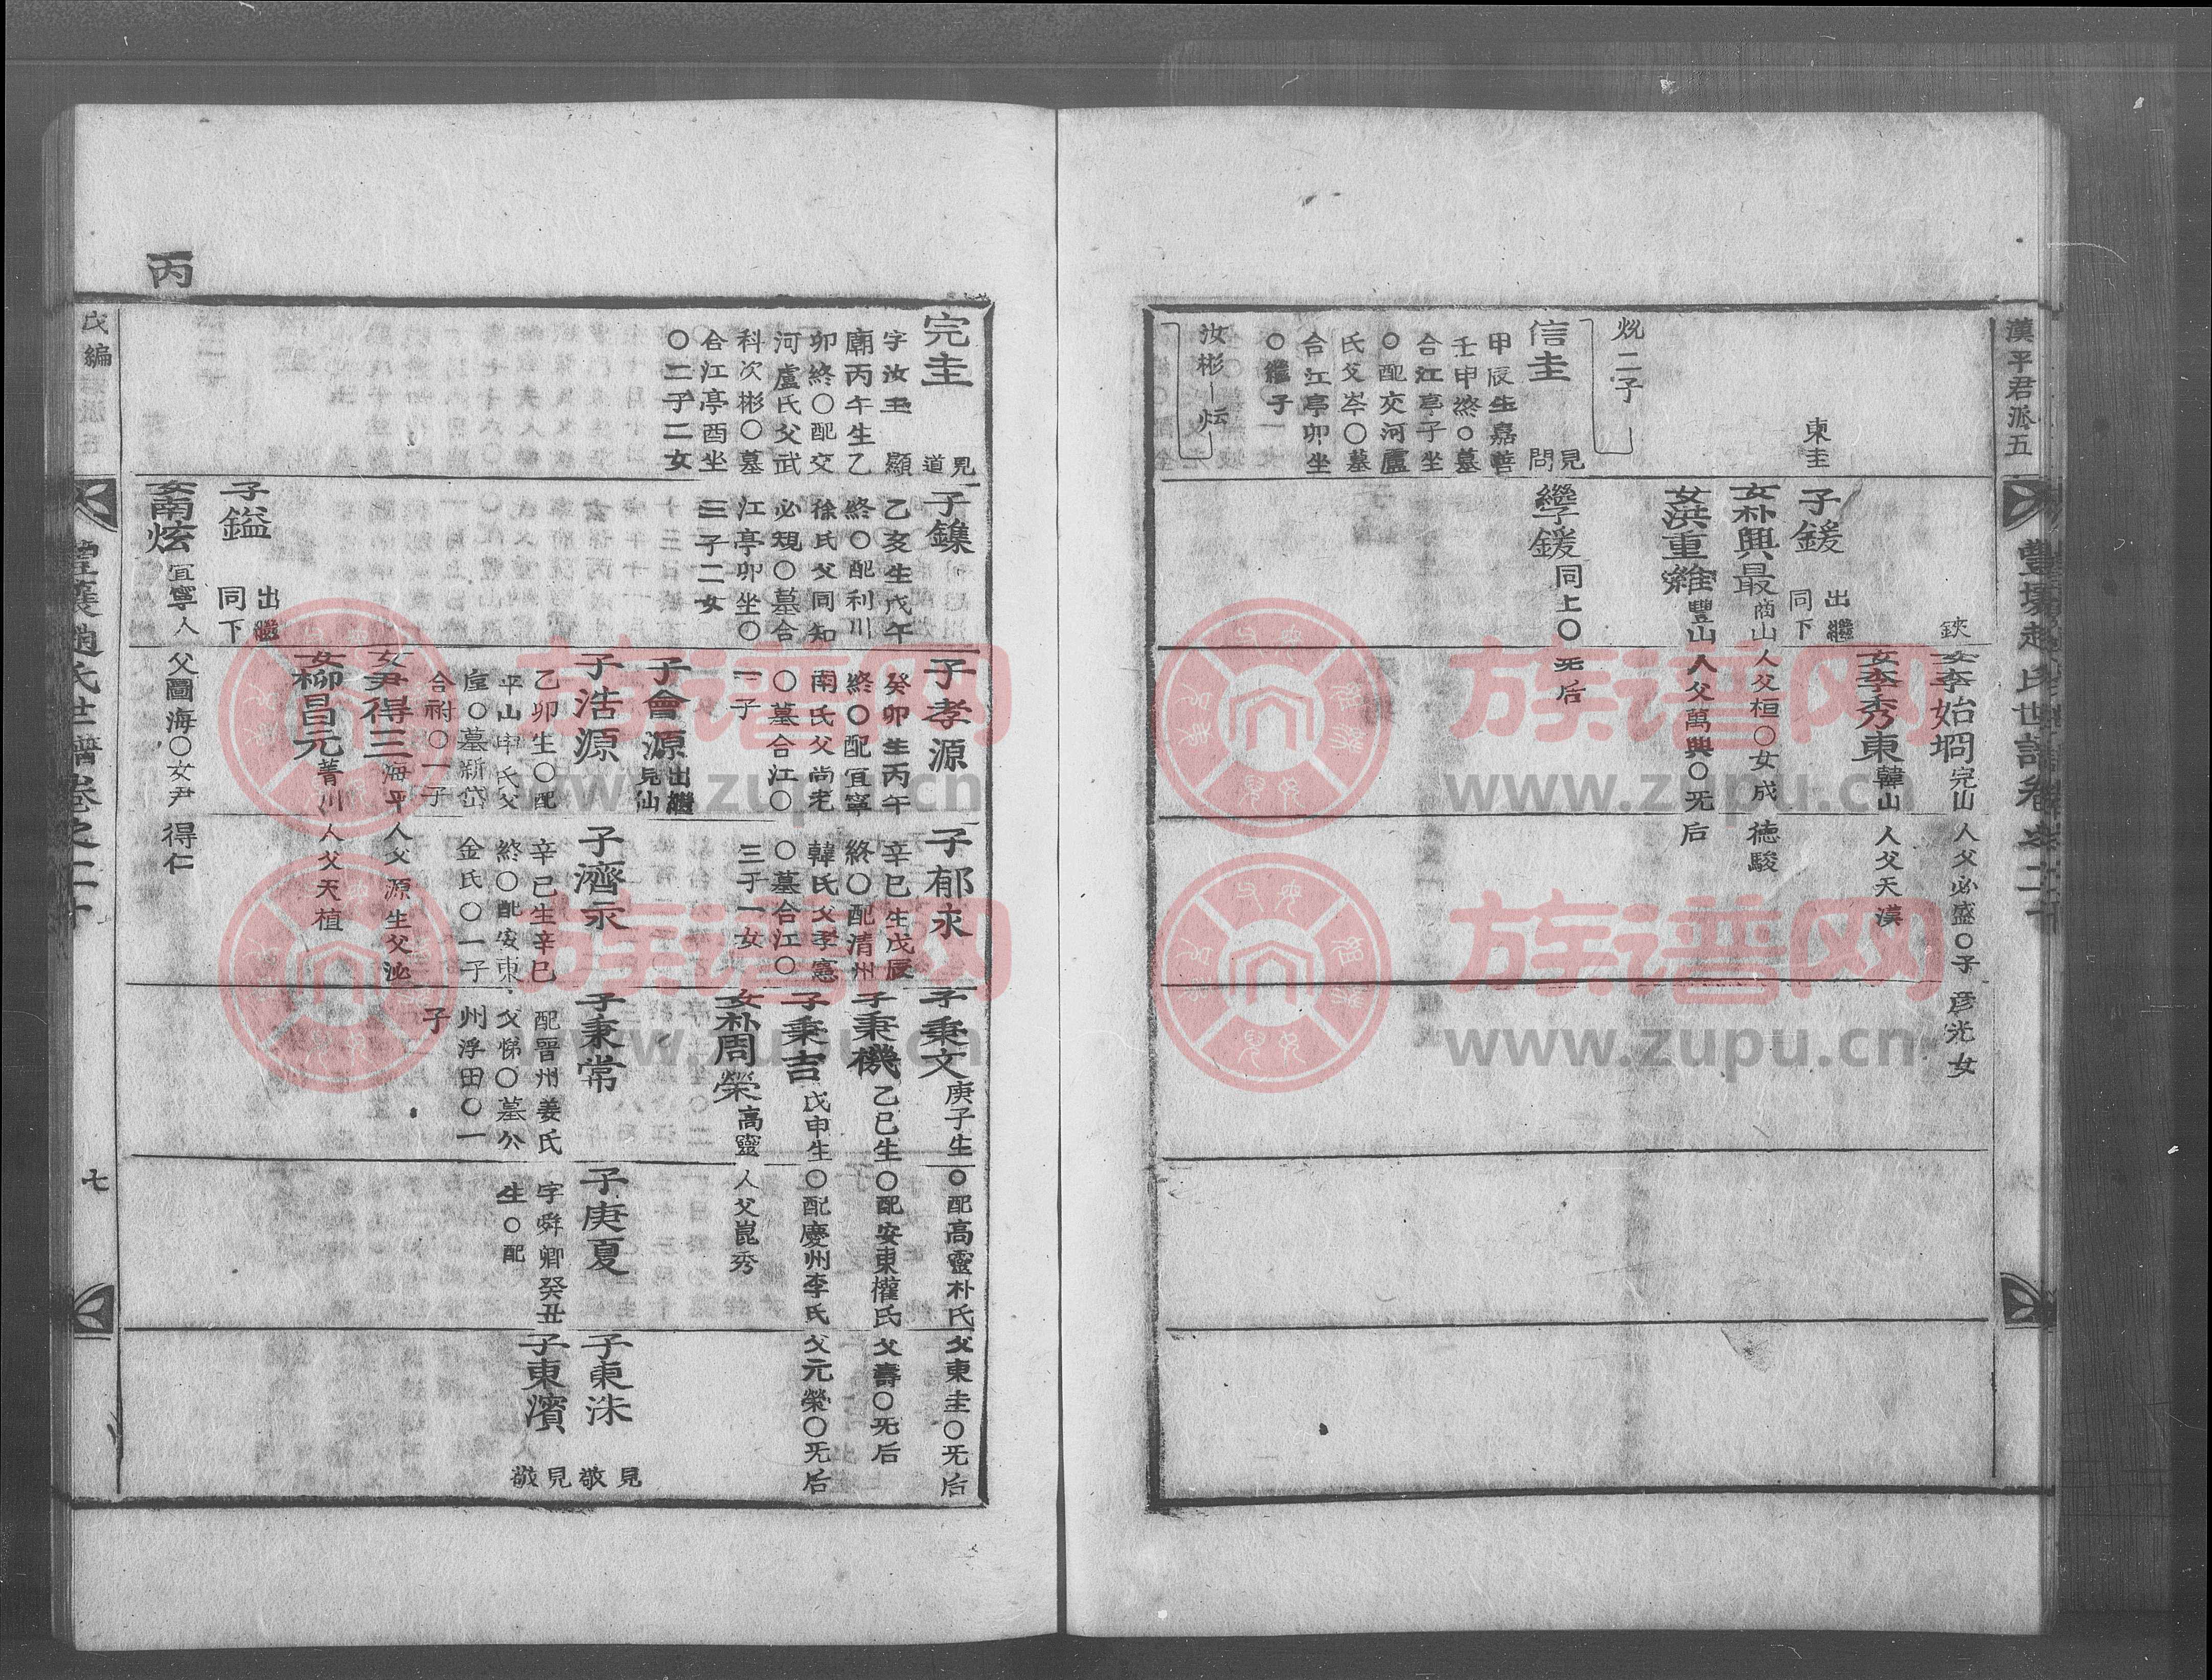 漢平君派五
豐壤趙氏世譜卷之二十
東圭
鋏
女李始垌 完山人父必盛〇子彦光女
女李秀東 韓山人父天漢
子鍰 出繼
同下
女朴興最 商山人父桓〇女成德駿
女洪重維 豐山人父萬興〇旡后
二子
信圭 見
問
甲辰生嘉善
壬申終〇墓
合江亭子坐
〇配交河盧
氏父岑〇墓
合江亭卯坐
〇繼子
孿鍰 同上〇旡后
汝彬
丙
完圭 見
道
字汝玉 顯
廟丙午生乙
卯終〇配交
河盧氏父武
科次彬〇墓
合江亭酉坐
〇二子二女
子鏶
乙亥生戊午
終〇配利川
徐氏父同知
必規〇墓合
江亭卯坐〇
三子二女
子鎰 出繼
同下
女南炫 宜寧人父圖海〇女尹得仁
子孝源
癸卯生丙午
終〇配宜寧
南氏父尚老
〇墓合江〇
一子
子會源 出繼
見仙
子浩源
乙卯生〇配
平山申氏父
〇墓新岱
合祔〇一子
女尹得三 海平人父源生父泌
女柳昌元 菁川人父天植
子郁永
辛巳生戊辰
終〇配清州
韓氏父孝憲
〇墓合江〇
三子一女
子濟永
辛巳生辛巳
終〇配安東
金氏〇一子
子秉文 庚子生〇配高靈朴氏父東圭〇旡后
子秉機 乙巳生〇配安東權氏父壽〇旡后
子秉吉 戊申生〇配慶州李氏父元榮〇旡后
女朴周榮 高靈人父崑秀
子秉常
配晉州姜氏
父悌〇墓公
州浮田〇一
子
子庚夏
字舜卿癸丑
生〇配
子東洙 見
敬
子東濱 見
敬
戊編
豐壤趙氏世譜卷之二十
七
族谱网
www.zupu.cn
族谱网
www.zupu.cn
族谱网
www.zupu.cn
族谱网
www.zupu.cn